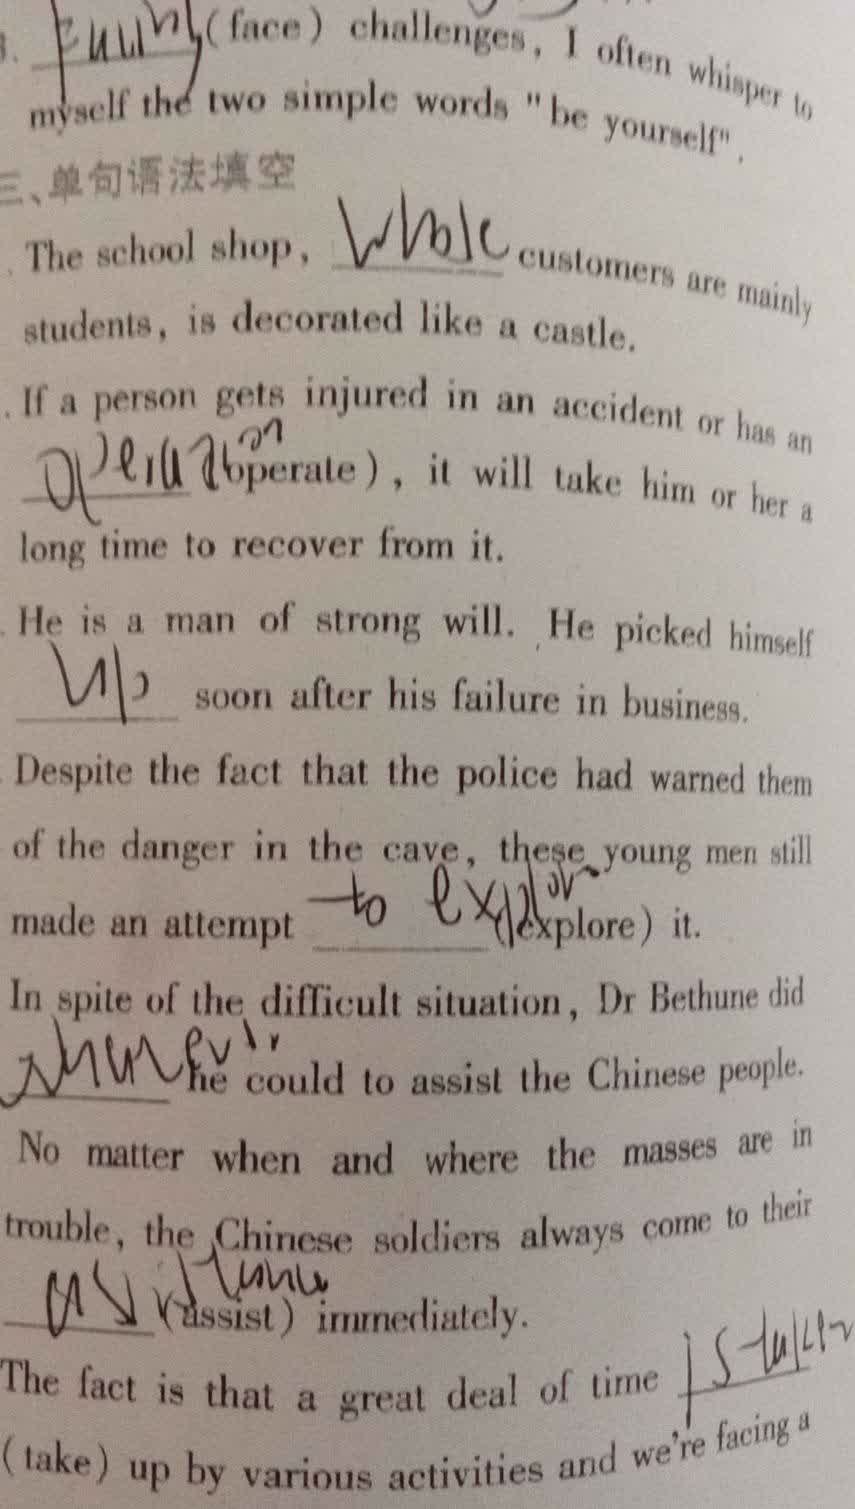 3. Facing (face) challenges, I often whisper to
myself the two simple words "be yourself".
三、单句语法填空
. The school shop, whose customers are mainly
students, is decorated like a castle.
. If a person gets injured in an accident or has an
operation (operate), it will take him or her a
long time to recover from it.
. He is a man of strong will. He picked himself
up soon after his failure in business.
. Despite the fact that the police had warned them
of the danger in the cave, these young men still
made an attempt to explore (explore) it.
In spite of the difficult situation, Dr Bethune did
he could to assist the Chinese people.
No matter when and where the masses are in
trouble, the Chinese soldiers always come to their
assistance (assist) immediately.
The fact is that a great deal of time is taken
(take) up by various activities and we're facing a